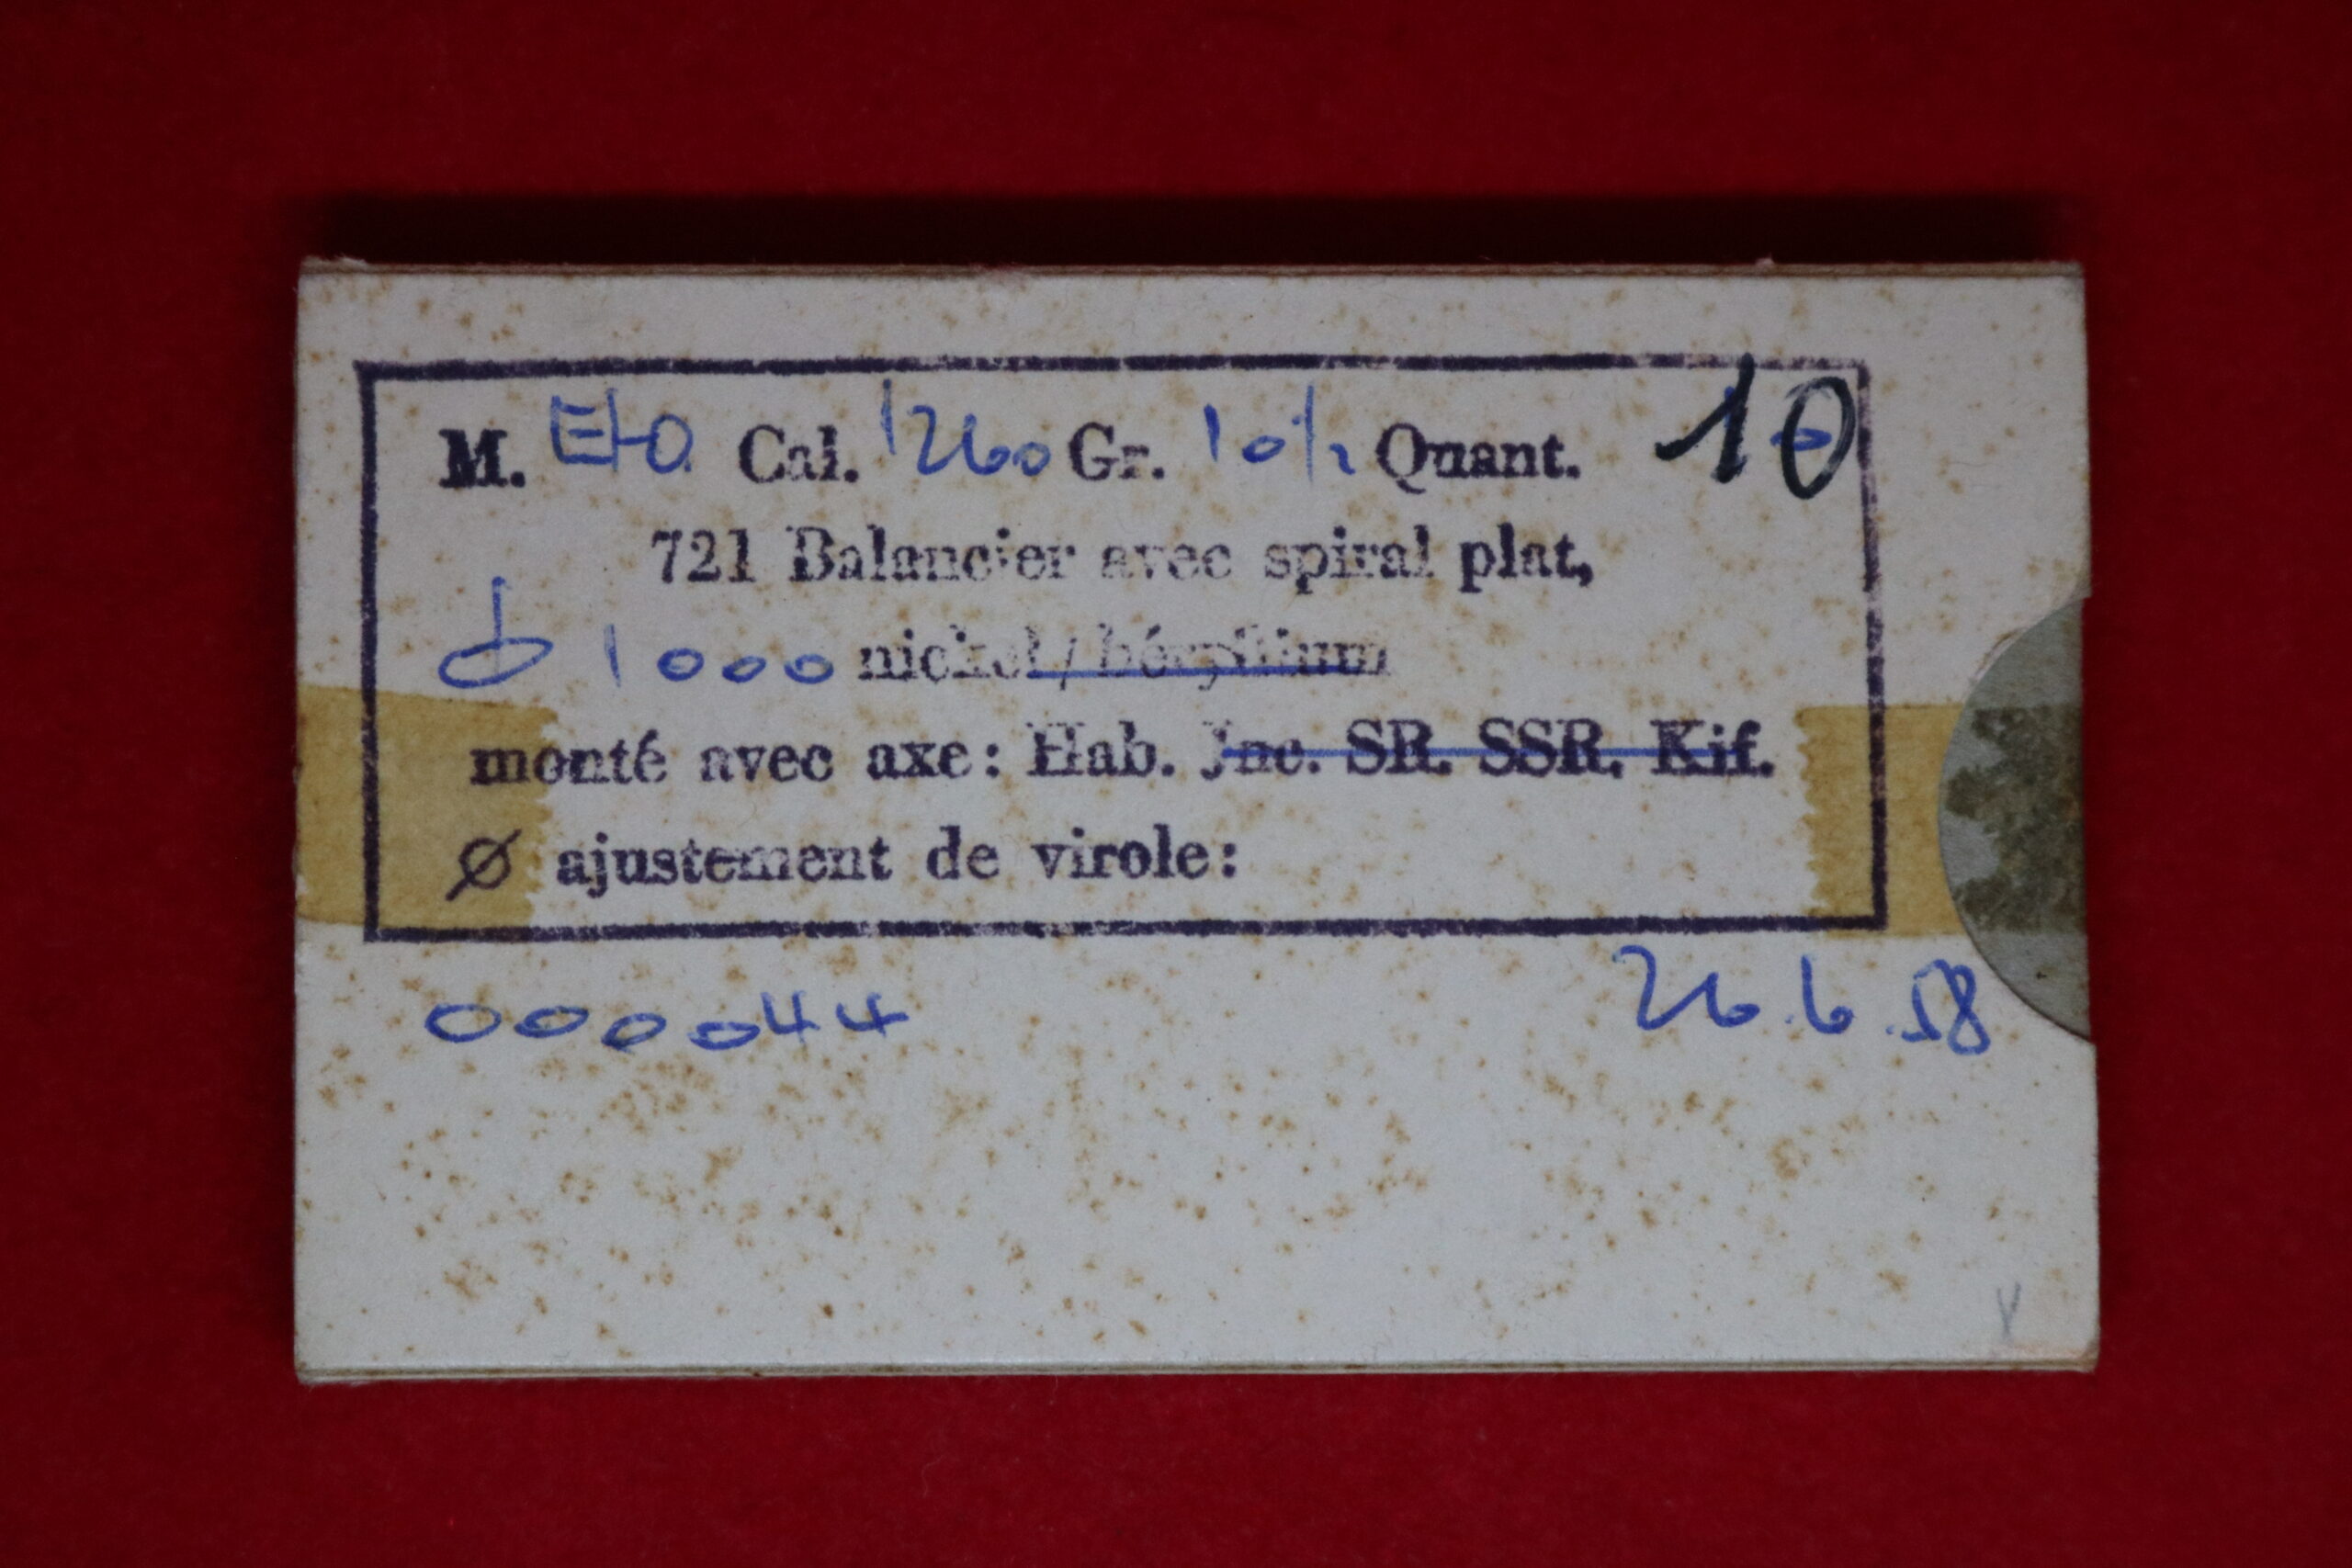 M. ETA Cal. 1260 Gr. 10 1/2 Quant. 10
721 Balancier avec spiral plat,
1000 nickel / béryllium
monté avec axe: Hab. Jnc. SR. SSR. Kif.
Ø ajustement de virole:
000044 26.6.58